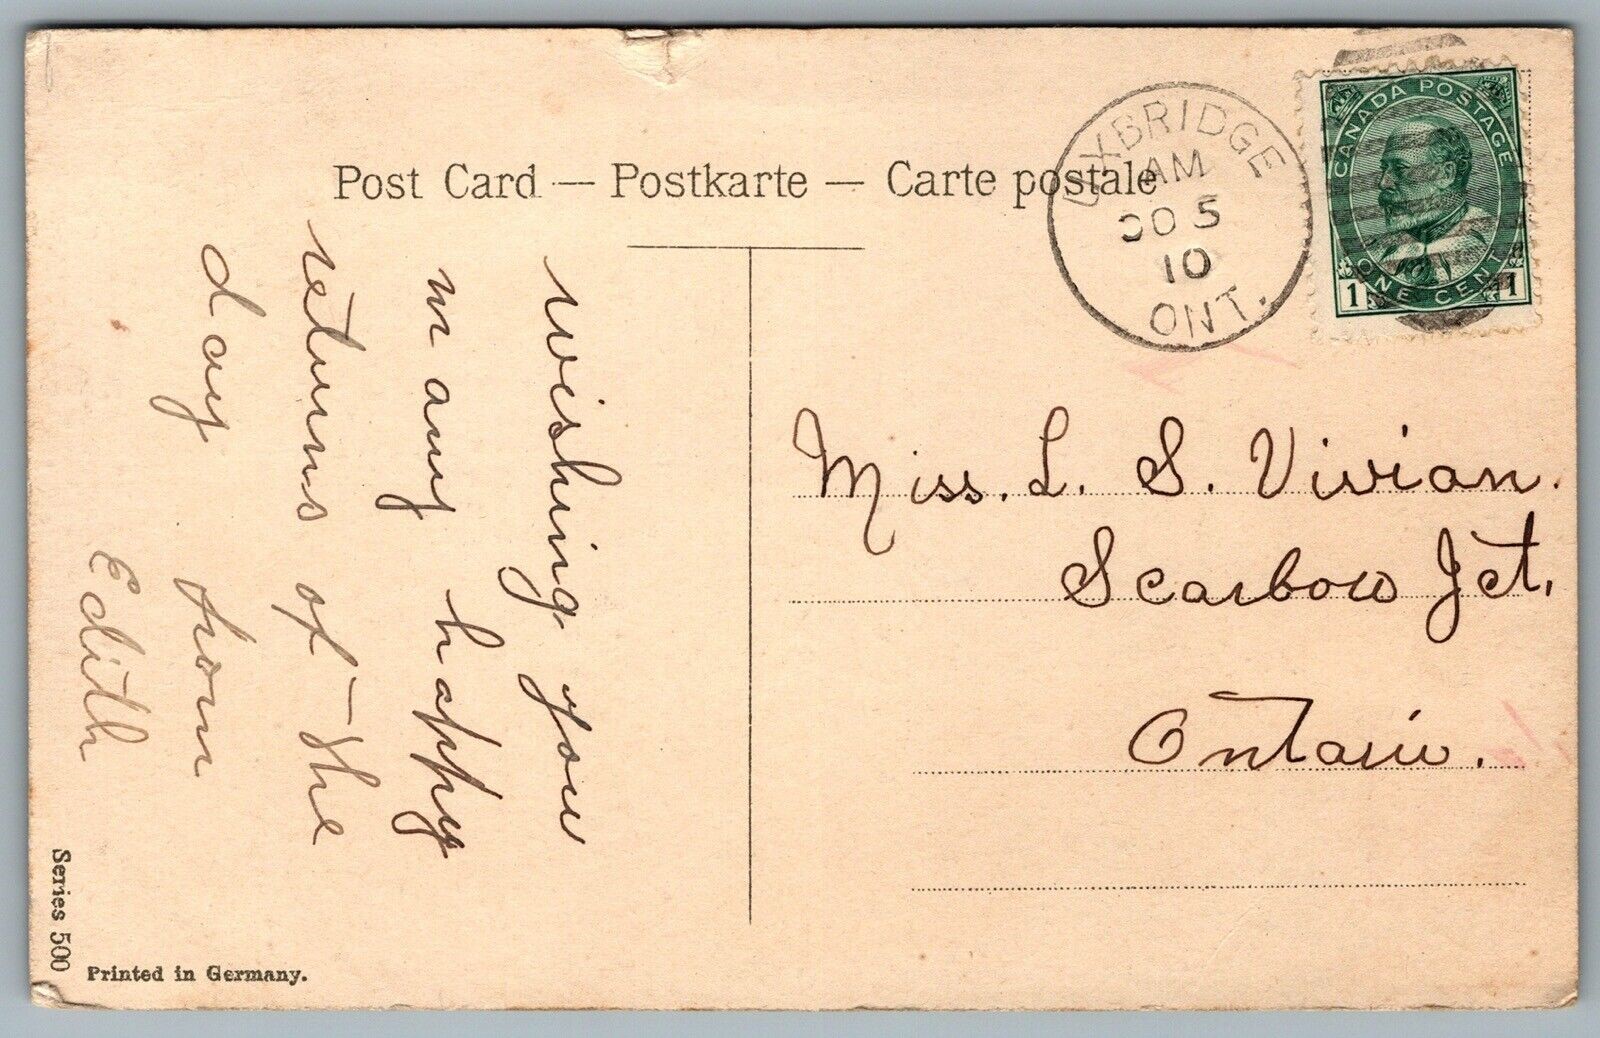 Post Card — Postkarte — Carte postale
UXBRIDGE
AM
OC 5
10
ONT.
CANADA POSTAGE
ONE CENT
1 1
wishing you
many happy
returns of the
day from
Edith
Miss. L. S. Vivian.
Scarboro Jct.
Ontario.
Series 500
Printed in Germany.